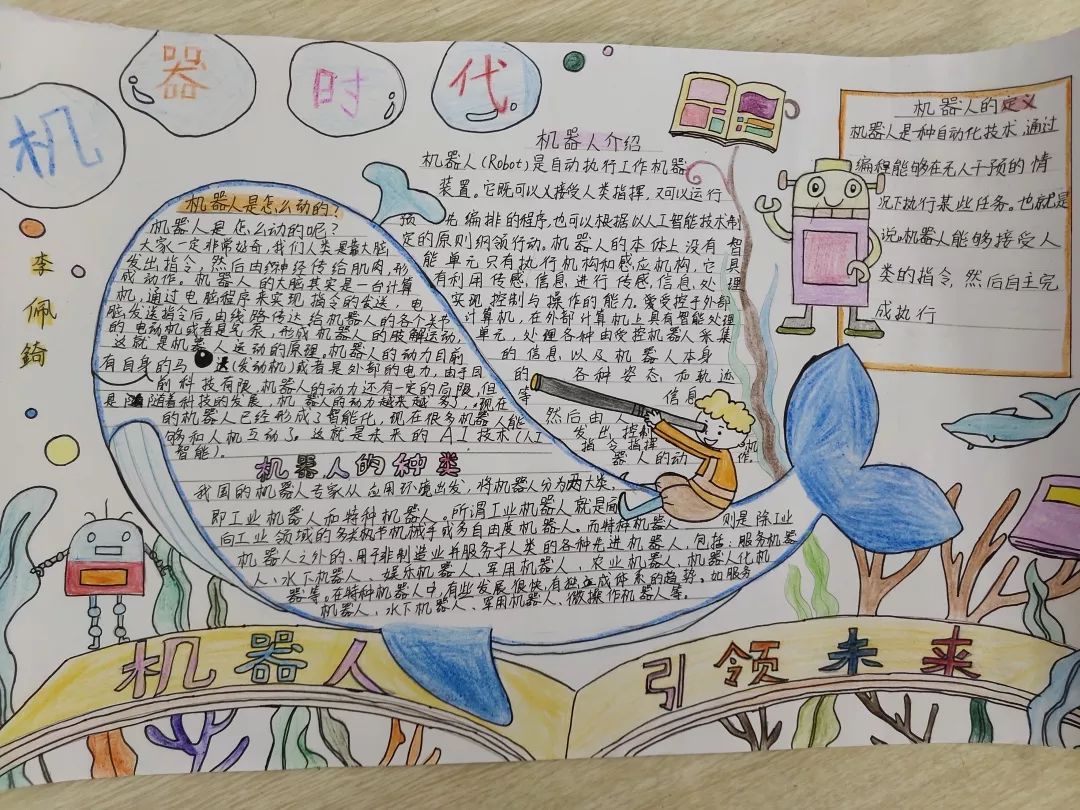 机器时代
李佩錡
机器人是怎么动的?
机器人是怎么动的呢?
大家一定非常好奇,我们人类是靠大脑
发出指令,然后由神经传给肌肉,形
成动作。机器人的大脑其实是一台计算
机,通过电脑程序来实现指令的发送,电
脑发送指令后,由线路传达给机器人的各个关节
的电动机或者是气泵,形成机器人的肢解运动,
这就是机器人运动的原理。机器人的动力目前
有自身的马达(发动机)或者是外部的电力,由于目
前科技有限,机器人的动力还有一定的局限,但
是随着科技的发展,机器人的动力越来越多了,现在
的机器人已经形成了智能化,现在很多机器人能
够和人机互动了。这就是未来的AI技术(人工
智能)。
机器人介绍
机器人(Robot)是自动执行工作机器
装置。它既可以乂接受人类指挥,又可以运行
预先编排的程序,也可以根据以人工智能技术制
定的原则纲领行动。机器人的本体上没有智
能单元只有执行机构和感应机构,它具
有利用传感,信息,进行传感,信息,处理
实现控制与操作的能力。爱受控于外部
计算机,在外部计算机上具有智能处理
单元,处理各种由受控机器人采集
的信息,以及机器人本身
的各种姿态和轨迹
等信息
然后由人
发出控制
指令指挥
机器人的动作。
机器人的定义
机器人是种自动化技术,通过
编程能够在无人干预的情
况下执行某些任务。也就是
说,机器人能够接受人
类的指令,然后自主完
成执行
机器人的种类
我国的机器人专家从应用环境出发,将机器人分为两大类,
即工业机器人和特种机器人。所谓工业机器人就是面
向工业领域的多关节机械手或多自由度机器人。而特种机器人则是除工业
机器人之外的,用于非制造业并服务于人类的各种先进机器人,包括:服务机器
人、水下机器人、娱乐机器人、军用机器人、农业机器人、机器人化机
器等。在特种机器人中,有些发展很快,有独立成体系的趋势。如服务
机器人、水下机器人、军用机器人、微操作机器人等。
机器人 引领未来